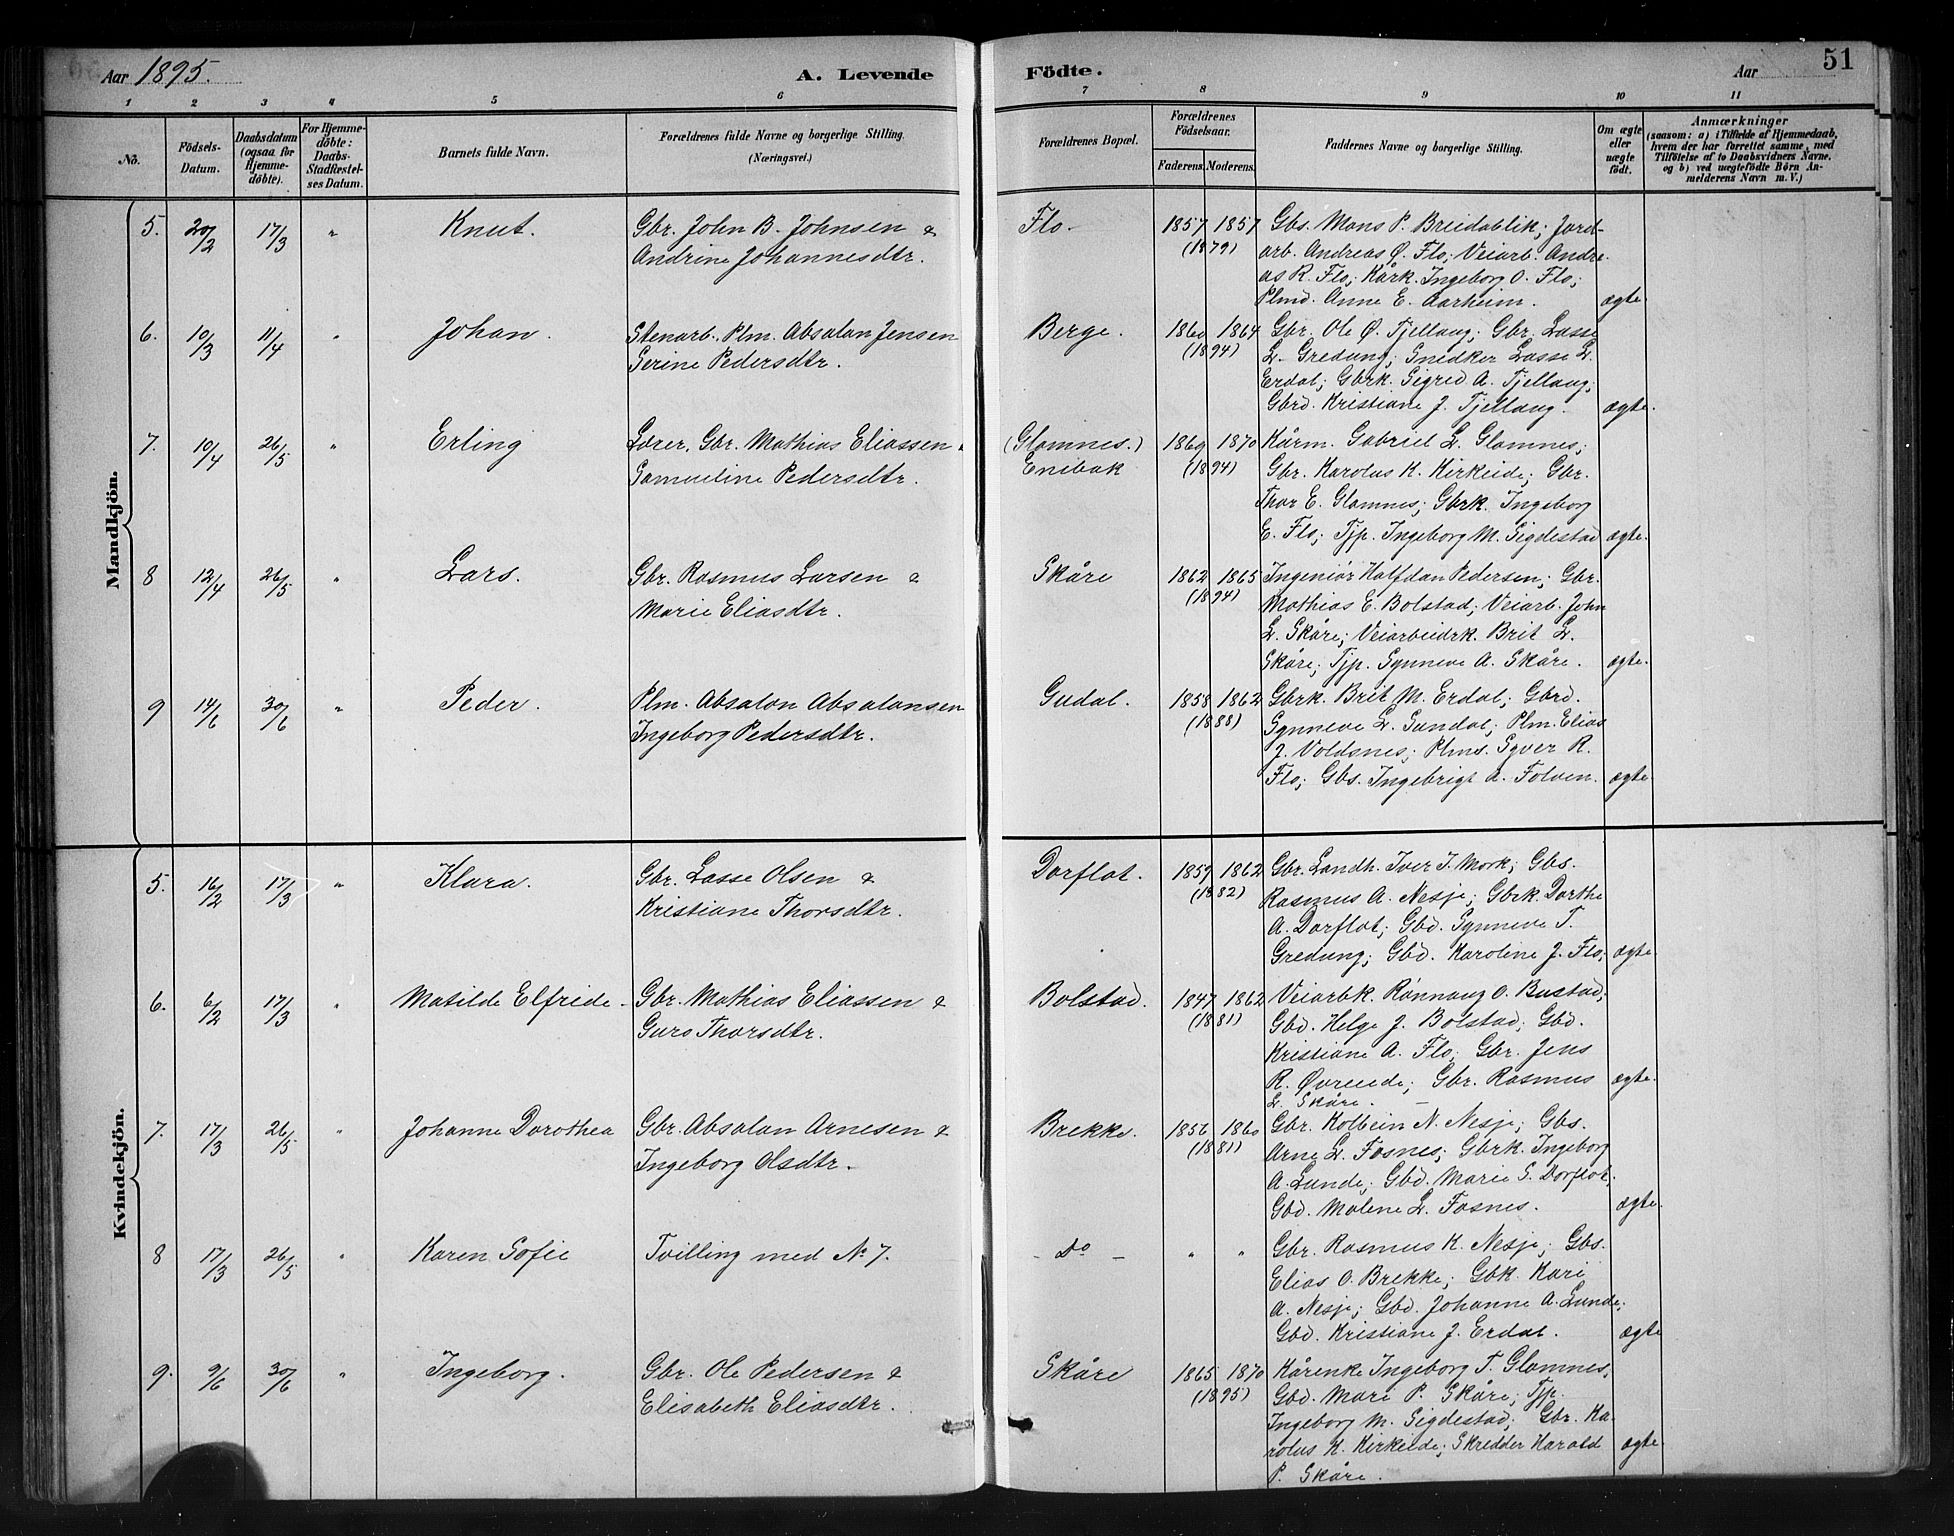 Aar 1895.
A. Levende
Födte.
Aar
51
1 2 3 4 5 6 7 8 9 10 11
No.
Födsels-
Datum.
Daabsdatum
(ogsaa for
Hjemme-
döbte).
For Hjemme-
döbte:
Daabs-
Stadfæstel-
ses Datum.
Barnets fulde Navn.
Forældrenes fulde Navne og borgerlige Stilling.
(Næringsvei.)
Forældrenes Bopæl.
Forældrenes
Födselsaar.
Faderens. Moderens.
Faddernes Navne og borgerlige Stilling.
Om ægte
eller
uægte
födt.
Anmærkninger
(saasom: a) i Tilfælde af Hjemmedaab,
hvem der har forrettet samme, med
Tilföielse af to Daabsvidners Navne,
og b) ved uægtefödte Börn An-
melderens Navn m. V.)
Mandkjön.
5. 20/2 17/3 " Knut. Gbr. John B. Johnsen &
Andrine Johannesdtr.
Flo. 1857 1857
(1879)
Gbs. Mons P. Breidablik; Jord-
arb. Andreas Ø. Flo; Veiarb. Andre-
as R. Flo; Kårk. Ingeborg O. Flo;
Plmd. Anne E. Aarheim. ægte
6. 10/3 11/4 " Johan. Stenarb., Plm. Absalon Jensen
Serine Pedersdtr.
Berge. 1860 1864
(1894)
Gbr. Ole Ø. Tjellaug; Gbr. Lasse
L. Gredung; Snedker Lasse L.
Erdal; Gbrk. Sigred A. Tjellaug;
Gbrd. Kristiane J. Tjellaug. ægte.
7. 10/4 26/5 " Erling Lærer, Gbr. Mathias Eliassen &
Samueline Pedersdtr.
(Glomnes.)
Enibak
1869 1870
(1894)
Kårm. Gabriel L. Glomnes;
Gbr. Karolus K. Kirkeide; Gbr.
Thor E. Glomnes; Gbrk. Ingeborg
E. Flo; Tjp. Ingeborg M. Sigdestad ægte.
8 12/4 26/5 " Lars. Gbr. Rasmus Larsen &
Marie Eliasdtr.
Skåre 1862 1865
(1894)
Ingeniör Halfdan Pedersen; Gbr.
Mathias E. Bolstad; Veiarb. John
L. Skåre; Veiarbeidrk. Brit L.
Skåre; Tjp. Synneve A. Skåre. ægte.
9 14/6 30/6 " Peder. Plm. Absalon Absalonsen
Ingeborg Pedersdtr.
Gudal. 1858 1862
(1888)
Gbrk. Brit M. Erdal; Gbrd.
Synneve L. Sundal; Plm. Elias
J. Voldsnes; Plms. Syver R.
Flo; Gbs. Ingebrigt A. Folven. ægte
Kvindekjön.
5. 16/2 17/3 " Klara. Gbr. Lasse Olsen &
Kristiane Thorsdtr.
Dorflot. 1859 1862
(1882)
Gbr. Landh. Iver I. Mork; Gbs.
Rasmus A. Nesje; Gbrk. Dorthe
A. Dorflot; Gbd. Synneve T.
Gredung; Gbd. Karoline J. Flo; ægte.
6. 6/2 17/3 " Matilde Elfride. Gbr. Mathias Eliassen &
Guro Thorsdtr.
Bolstad. 1847 1862
(1881)
Veiarbk. Rönnaug O. Bustad;
Gbd. Helge J. Bolstad; Gbd.
Kristiane A. Flo; Gbr. Jens
R. Øvreide; Gbr. Rasmus
L. Skåre. ægte.
7. 17/3 26/5 " Johanne Dorothea Gbr. Absalon Arnesen &
Ingeborg Olsdtr.
Brekke. 1856 1860
(1881)
Gbr. Kolbein N. Nesje; Gbs.
Arne L. Fosnes; Gbrk. Ingeborg
A. Lunde; Gbd. Marie S. Dorflot,
Gbd. Malene L. Fosnes. ægte.
8 17/3 26/5 " Karen Sofie Tvilling med No 7.
- Do - " "
Gbr. Rasmus K. Nesje; Gbs.
Elias O. Brekke; Gbk. Kari
A. Nesje; Gbd. Johanne A. Lunde;
Gbd. Kristiane J. Erdal. ægte
9. 9/6 30/6 " Ingeborg. Gbr. Ole Pedersen &
Elisabeth Eliasdtr.
Skåre 1865 1870
(1895)
Kårenke Ingeborg T. Glomnes,
Gbd. Mari P. Skåre; Tjp.
Ingeborg M. Sigdestad; Gbr. Ka-
rolus K. Kirkeide; Skredder Harald
P. Skåre. ægte